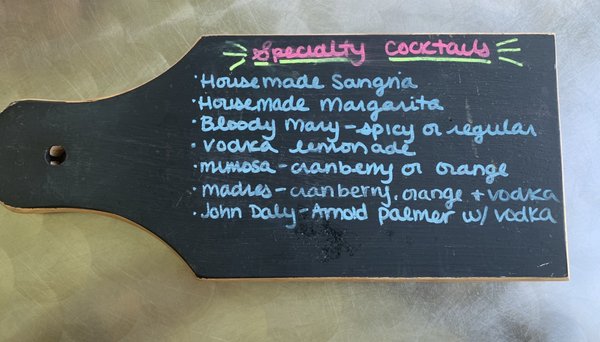 Specialty Cocktails
· Housemade Sangria
· Housemade Margarita
· Bloody Mary - spicy or regular
· vodka lemonade
· mimosa - cranberry or orange
· madres - cranberry, orange + vodka
· John Daly - Arnold palmer w/ vodka